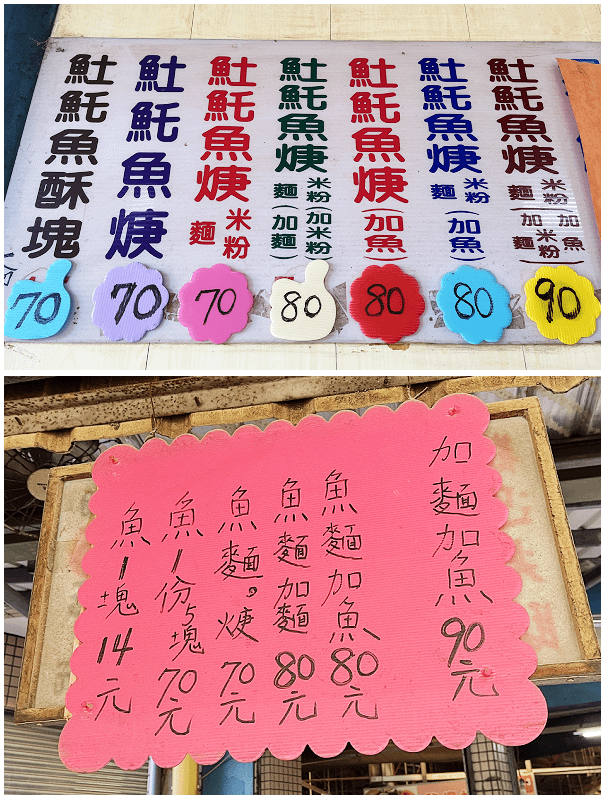 𩵚魠魚酥塊 70
𩵚魠魚焿 70
𩵚魠魚焿 麵 米粉 70
𩵚魠魚焿 麵 米粉 (加麵 加米粉) 80
𩵚魠魚焿 (加魚) 80
𩵚魠魚焿 麵 米粉 (加魚) 80
𩵚魠魚焿 麵 米粉 (加麵 加米粉 加魚) 90
魚1塊14元
魚1份5塊70元
魚麵。焿70元
魚麵加麵80元
魚麵加魚80元
加麵加魚90元